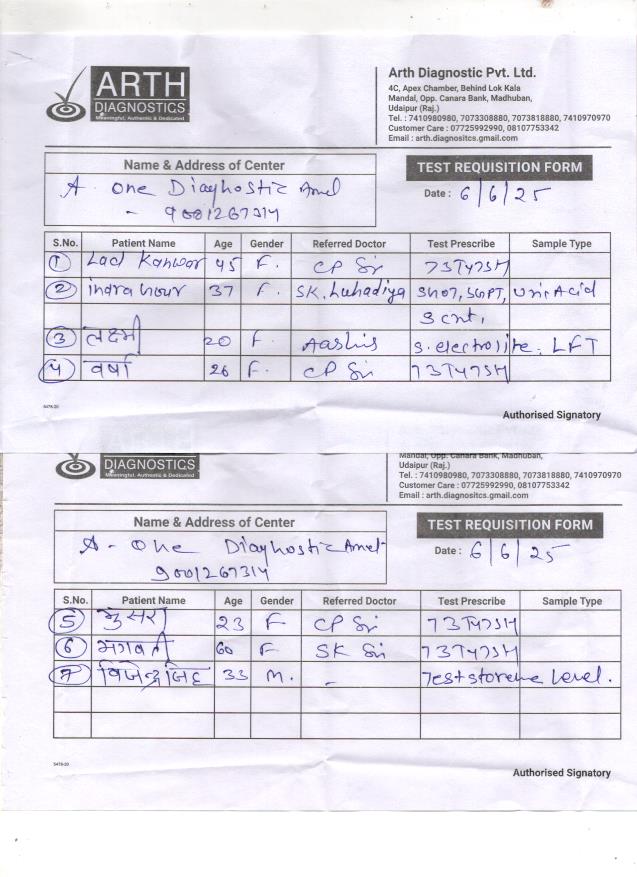 ARTH
DIAGNOSTICS
Meaningful, Authentic & Dedicated
Arth Diagnostic Pvt. Ltd.
4C, Apex Chamber, Behind Lok Kala
Mandal, Opp. Canara Bank, Madhuban,
Udaipur (Raj.)
Tel. : 7410980980, 7073308880, 7073818880, 7410970970
Customer Care : 07725992990, 08107753342
Email : arth.diagnositcs.gmail.com
Name & Address of Center
A. One Diagnostic Amet
- 9001267314
TEST REQUISITION FORM
Date : 6/6/25
S.No. Patient Name Age Gender Referred Doctor Test Prescribe Sample Type
1 Lad Kanwar 45 F. CP Sir T3T4TSH
2 indra kour 37 F. SK. Luhadiya SGOT, SGPT, Uric Acid
S cnt,
3 लक्ष्मी 20 F. Aashis S. electrolite. LFT
4 वर्षा 26 F. CP Sir T3T4TSH
5478-20
Authorised Signatory
DIAGNOSTICS
Meaningful, Authentic & Dedicated
Mandal, Opp. Canara Bank, Madhuban,
Udaipur (Raj.)
Tel. : 7410980980, 7073308880, 7073818880, 7410970970
Customer Care : 07725992990, 08107753342
Email : arth.diagnositcs.gmail.com
Name & Address of Center
A - One Diagnostic Amet
9001267314
TEST REQUISITION FORM
Date : 6/6/25
S.No. Patient Name Age Gender Referred Doctor Test Prescribe Sample Type
5 23 F CP Sir T3T4TSH
6 भगवती 60 F SK Sir T3T4TSH
7 विजेन्द्र सिंह 33 M. - Teststorene Level.
5478-20
Authorised Signatory